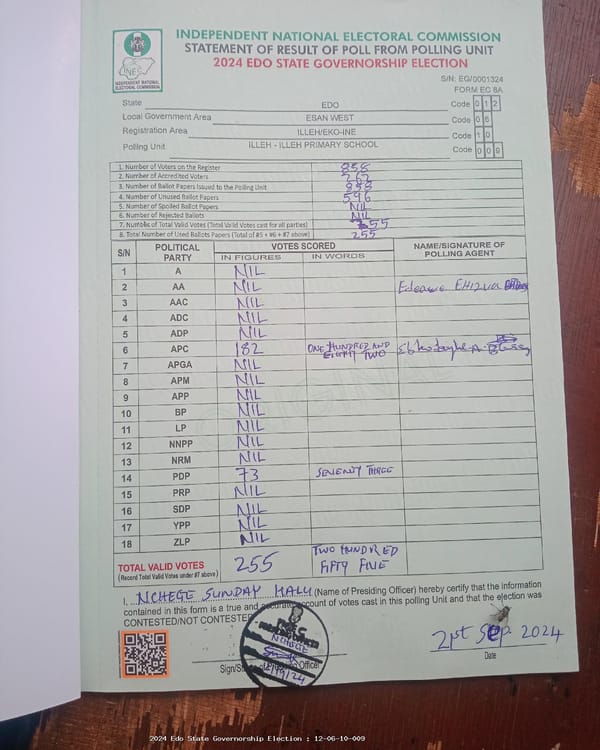 INDEPENDENT NATIONAL ELECTORAL COMMISSION
STATEMENT OF RESULT OF POLL FROM POLLING UNIT
2024 EDO STATE GOVERNORSHIP ELECTION
INEC
INDEPENDENT NATIONAL ELECTORAL COMMISSION
S/N: EG/0001324
FORM EC 8A
State EDO Code 0 1 2
Local Government Area ESAN WEST Code 0 6
Registration Area ILLEH/EKO-INE Code 1 0
Polling Unit ILLEH - ILLEH PRIMARY SCHOOL Code 0 0 9
1. Number of Voters on the Register 858
2. Number of Accredited Voters
3. Number of Ballot Papers Issued to the Polling Unit 858
4. Number of Unused Ballot Papers 596
5. Number of Spoiled Ballot Papers NIL
6. Number of Rejected Ballots NIL
7. Number of Total Valid Votes (Total Valid Votes cast for all parties) 255
8. Total Number of Used Ballots Papers (Total of #5 + #6 + #7 above) 255
S/N POLITICAL PARTY VOTES SCORED NAME/SIGNATURE OF POLLING AGENT
IN FIGURES IN WORDS
1 A NIL
2 AA NIL
3 AAC NIL
4 ADC NIL
5 ADP NIL
6 APC 182 ONE HUNDRED AND EIGHTY TWO
7 APGA NIL
8 APM NIL
9 APP NIL
10 BP NIL
11 LP NIL
12 NNPP NIL
13 NRM NIL
14 PDP 73 SEVENTY THREE
15 PRP NIL
16 SDP NIL
17 YPP NIL
18 ZLP NIL
TOTAL VALID VOTES 255 TWO HUNDRED FIFTY FIVE
(Record Total Valid Votes under #7 above)
I, NCHEGE SUNDAY KALU (Name of Presiding Officer) hereby certify that the information
contained in this form is a true and accurate account of votes cast in this polling Unit and that the election was
CONTESTED/NOT CONTESTED
21st Sep 2024
Sign/ Officer
Date
2024 Edo State Governorship Election : 12-06-10-009